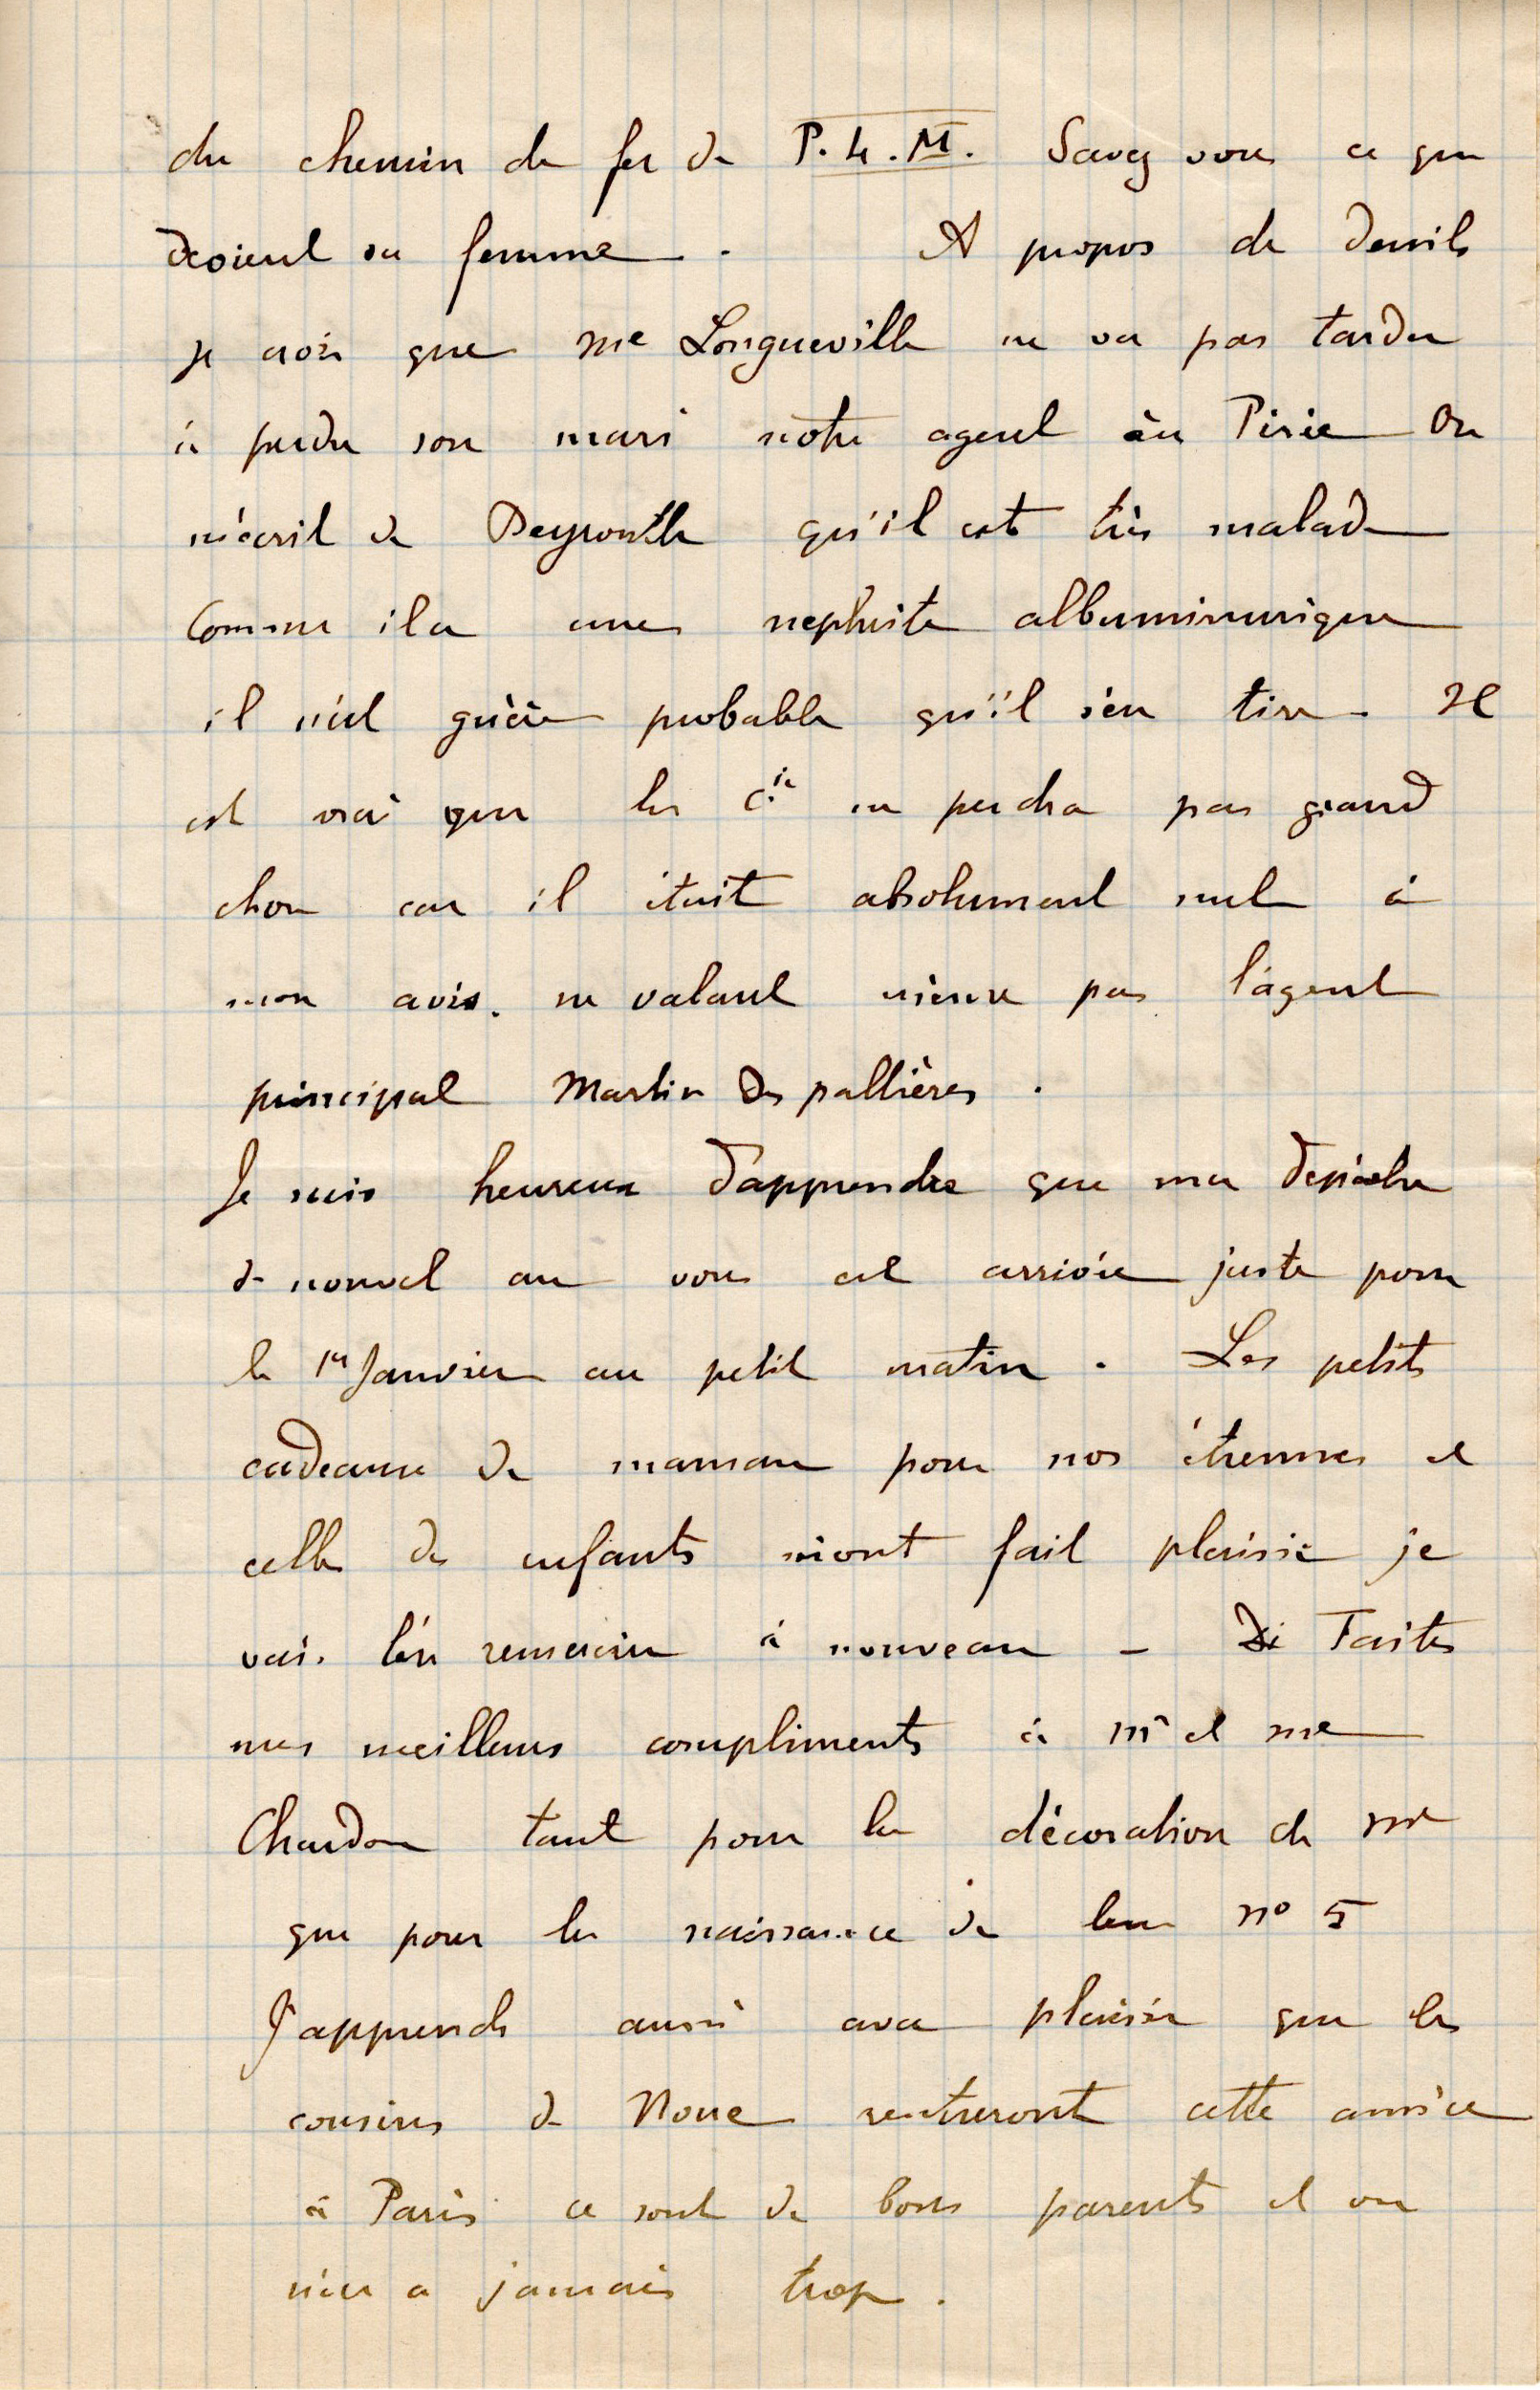 du chemin de fer de P.L.M. Savez vous ce que
devient sa femme. A propos de deuils
je crois que Me Longueville ne va pas tarder
à perdre son mari notre agent au Pirée On
m'écrit de Beyrouth qu'il est très malade
Comme il a une nephrite albuminurique
il n'est guère probable qu'il s'en tire. Il
est vrai que la Cie ne perdra pas grand
chose car il était absolument nul à
mon avis. ne valant même pas l'agent
principal Martin des pallières.
Je suis heureux d'apprendre que ma depêche
de nouvel an vous est arrivée juste pour
le 1er Janvier au petit matin. Les petits
cadeaux de maman pour nos étrennes et
celles des enfants m'ont fait plaisir je
vais l'en remercier à nouveau - Faites
mes meilleurs compliments à Mr et Me
Chardon tant pour la décoration de Mr
que pour la naissance de leur no 5
J'apprends aussi avec plaisir que les
cousins de Noue rentreront cette année
à Paris ce sont de bons parents et on
n'en a jamais trop.